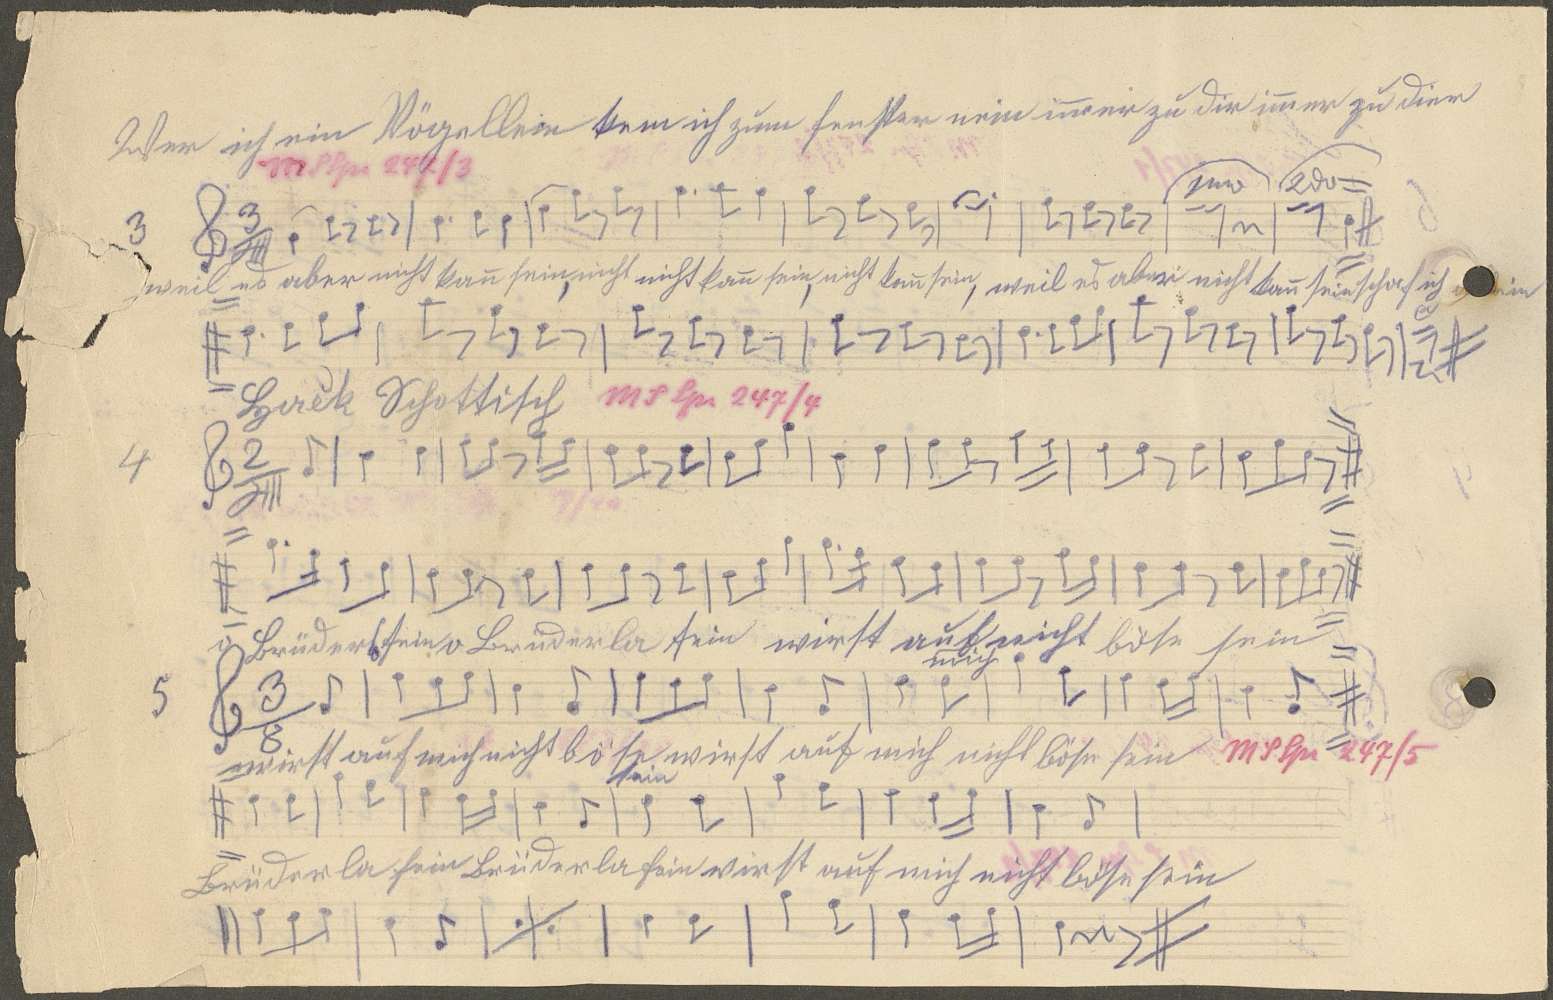 Wer ich ein Vögellein kem ich zum fenster nein immer zu dir immer zu dier
MS Sp 247/3
3 3
1mo 2do
weil es aber nicht kan̄ sein, nicht nicht kan̄ sein, nicht kan̄ sein, weil es aber nicht kan̄ sein schaf ich
Hack Schottisch MS Sp 247/4
4 2
o Brüderla fein o Brüderla fein wirst auf nicht böse sein
mich
5 3/8
wirst auf mich nicht böse wirst auf mich nicht böse sein MS Sp 247/5
sein
Brüderla fein Brüderla fein wirst auf mich nicht böse sein